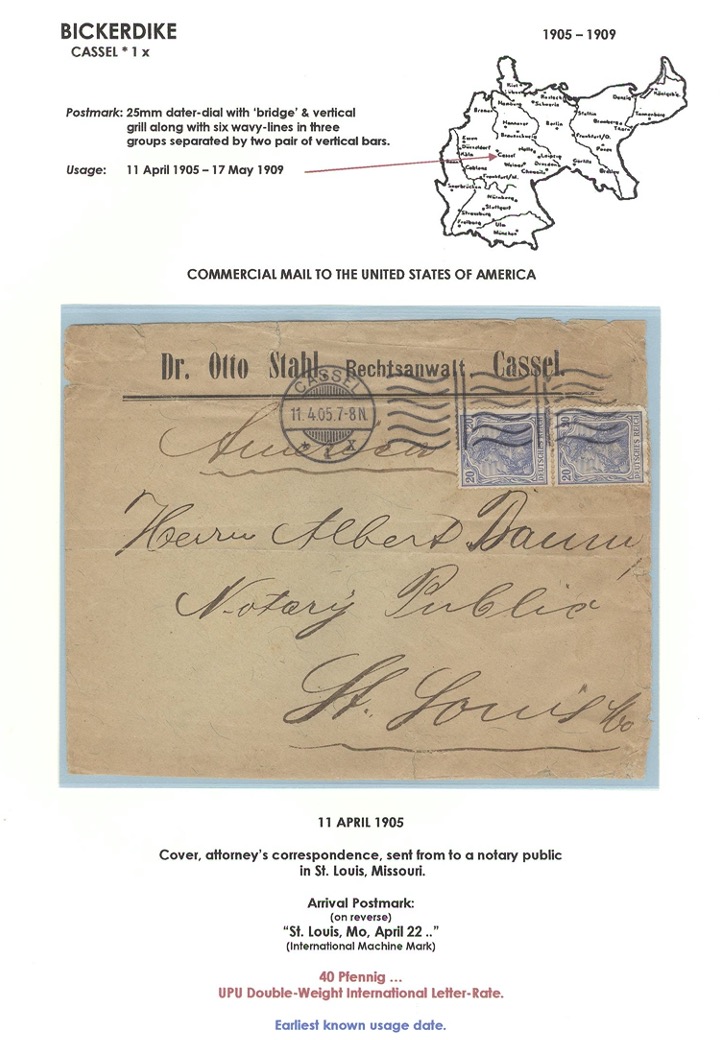 BICKERDIKE
CASSEL * 1 x
1905 – 1909
Postmark: 25mm dater-dial with ‘bridge’ & vertical
grill along with six wavy-lines in three
groups separated by two pair of vertical bars.
Usage: 11 April 1905 – 17 May 1909
Kiel
Lübeck
Rostock
Schwerin
Hamburg
Bremen
Stettin
Danzig
Königsberg
Tannenberg
Bromberg
Thorn
Hannover
Berlin
Braunschweig
Frankfurt/O.
Posen
Essen
Düsseldorf
Köln
Cassel
Halle
Leipzig
Weimar
Dresden
Chemnitz
Görlitz
Breslau
Coblenz
Frankfurt/M.
Saarbrücken
Nürnberg
Stuttgart
Strassburg
Freiburg
Ulm
München
COMMERCIAL MAIL TO THE UNITED STATES OF AMERICA
Dr. Otto Stahl, Rechtsanwalt, Cassel.
CASSEL
11.4.05.7-8N.
* 1 x
America
20 DEUTSCHES REICH
20 DEUTSCHES REICH
Herrn Albert Damm
Notary Public
St. Louis Mo
11 APRIL 1905
Cover, attorney’s correspondence, sent from to a notary public
in St. Louis, Missouri.
Arrival Postmark:
(on reverse)
“St. Louis, Mo, April 22 ..”
(International Machine Mark)
40 Pfennig ...
UPU Double-Weight International Letter-Rate.
Earliest known usage date.